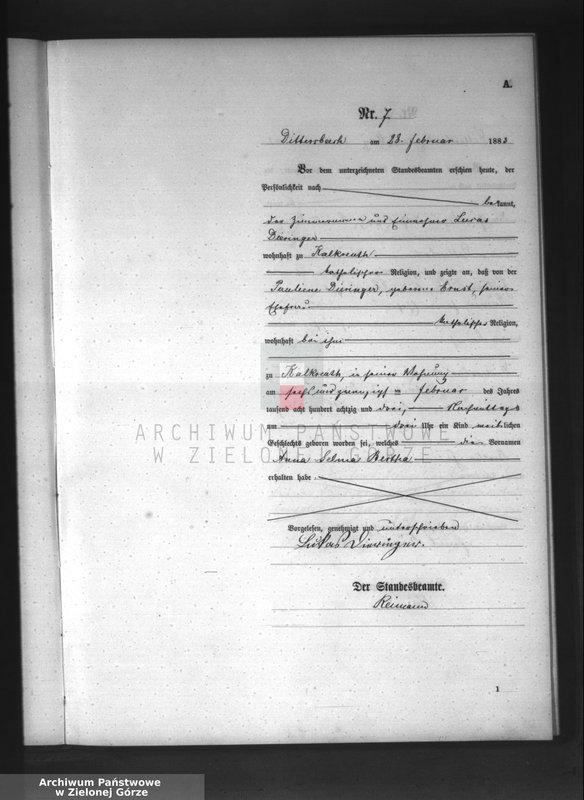 A.
Nr. 7.
Dittersbach am 28. Februar 1883
Vor dem unterzeichneten Standesbeamten erschien heute, der
Persönlichkeit nach
bekannt,
der Zimmermann und Einwohner Lucas
Dieringer
wohnhaft zu Kalkreuth
katholischer Religion, und zeigte an, daß von der
Pauliene Dieringer, geborene Ernst, seiner
Ehefrau
katholischer Religion,
wohnhaft bei ihm
zu Kalkreuth, in seiner Wohnung
am sechs und zwanzigsten Februar des Jahres
tausend acht hundert achtzig und drei, Nachmittags
um drei Uhr ein Kind weiblichen
Geschlechts geboren worden sei, welches die Vornamen
Anna Selma Bertha
erhalten habe
Vorgelesen, genehmigt und unterschrieben
Lukas Dieringer.
Der Standesbeamte.
Reimann
1
ARCHIWUM PAŃSTWOWE
W ZIELONEJ GÓRZE
Archiwum Państwowe
w Zielonej Górze